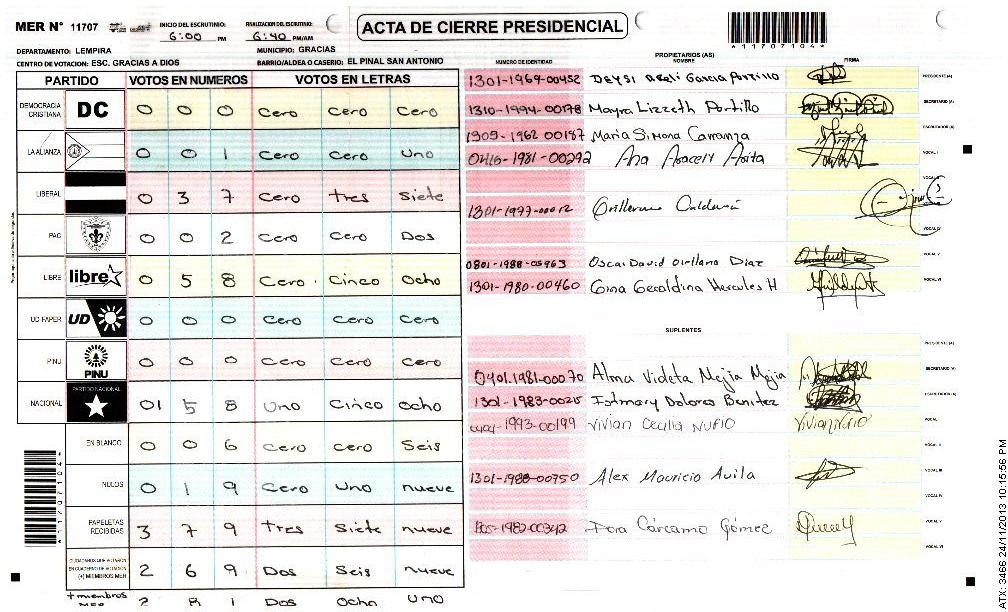 MER N° 11707
INICIO DEL ESCRUTINIO: 6:00 PM
FINALIZACION DEL ESCRUTINIO: 6:40 PM/AM
ACTA DE CIERRE PRESIDENCIAL
*11707104*
DEPARTAMENTO: LEMPIRA
MUNICIPIO: GRACIAS
CENTRO DE VOTACION: ESC. GRACIAS A DIOS
BARRIO/ALDEA O CASERIO: EL PINAL SAN ANTONIO
PARTIDO VOTOS EN NUMEROS VOTOS EN LETRAS
DEMOCRACIA CRISTIANA DC 0 0 0 Cero Cero Cero
LA ALIANZA 0 0 1 Cero Cero Uno
LIBERAL 0 3 7 Cero Tres Siete
PAC 0 0 2 Cero Cero Dos
LIBRE libre 0 5 8 Cero Cinco Ocho
UD FAPER UD 0 0 0 Cero Cero Cero
PINU PINU 0 0 0 Cero Cero Cero
NACIONAL PARTIDO NACIONAL 01 5 8 Uno Cinco Ocho
EN BLANCO 0 0 6 Cero Cero Seis
NULOS 0 1 9 Cero Uno nueve
PAPELETAS RECIBIDAS 3 7 9 Tres Siete nueve
CIUDADANOS QUE VOTARON EN CUADERNO DE VOTACION (+) MIEMBROS MER 2 6 9 Dos Seis nueve
+ miembros MER 2 8 1 Dos Ocho Uno
*11707104*
PROPIETARIOS (AS)
NUMERO DE IDENTIDAD NOMBRE FIRMA
1301-1969-00452 Deysi Areli Garcia Portillo PRESIDENTE (A)
1310-1994-00178 Mayra Lizzeth Portillo SECRETARIO (A)
1305-1962 00187 Maria Simona Carranza ESCRUTADOR (A)
0416-1981-00292 Ana Araceli VOCAL I
VOCAL II
1301-1977-00012 Guillermo Calderón
VOCAL IV
0801-1988-05963 Oscar David Orellana Diaz VOCAL V
1301-1980-00460 Gina Geraldina Hercules H VOCAL VI
SUPLENTES
PRESIDENTE (A)
0401.1981-00070 Alma Videta Mejia Mejia SECRETARIO (A)
1301-1983-00215 Istmary Dolores Benitez ESCRUTADOR (A)
1993-00199 Vivian Cecilia Nuño Vivian Nuño VOCAL
VOCAL II
1301-1988-00750 Alex Mauricio Avila VOCAL III
VOCAL IV
1305-1982-00342 Dora Cárcamo Gómez VOCAL V
VOCAL VI
ATX: 3466 24/11/2013 10:15:56 PM